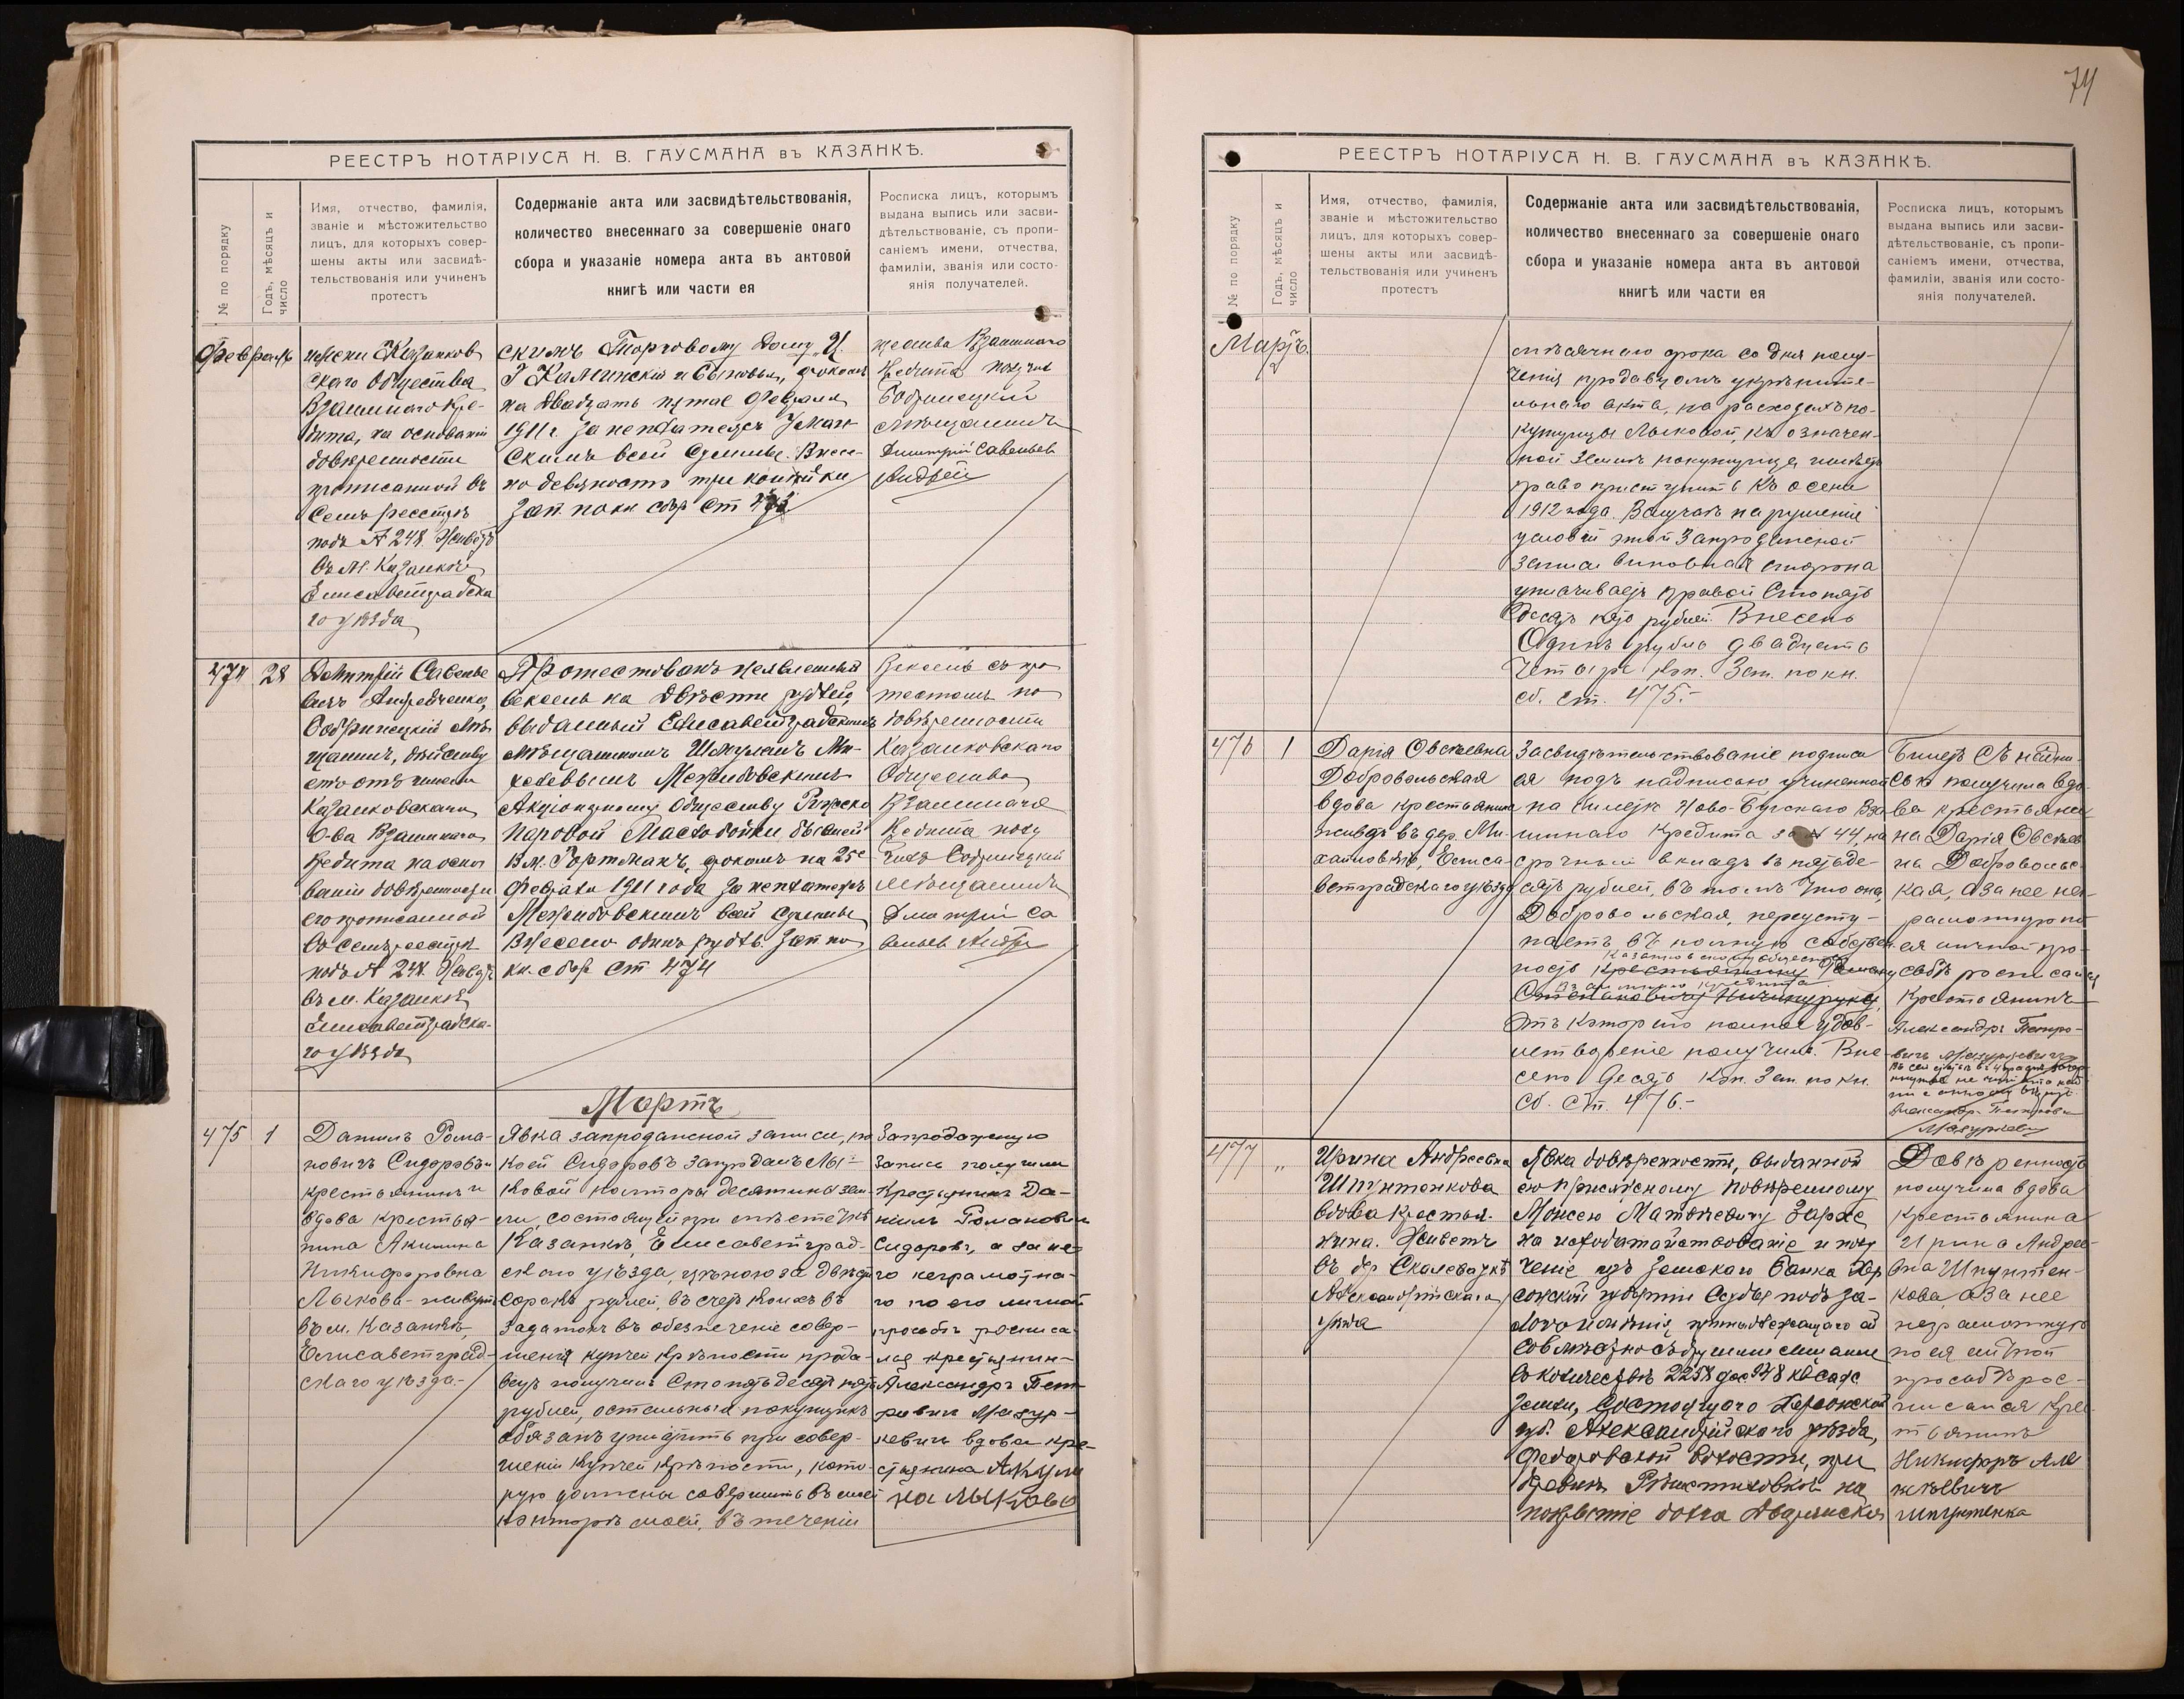 РЕЕСТРЪ НОТАРІУСА Н. В. ГАУСМАНА въ КАЗАНКѢ.
№ по порядку
Годъ, мѣсяцъ и
число
Имя, отчество, фамилія,
званіе и мѣстожительство
лицъ, для которыхъ совер-
шены акты или засвидѣ-
тельствованія или учиненъ
протестъ
Содержаніе акта или засвидѣтельствованія,
количество внесеннаго за совершеніе онаго
сбора и указаніе номера акта въ актовой
книгѣ или части ея
Росписка лицъ, которымъ
выдана выпись или засви-
дѣтельствованіе, съ пропи-
саніемъ имени, отчества,
фамиліи, званія или состо-
янія получателей.
Февраль
Казанков
скаго Общества
Взаимнаго Кре-
дита, на основаніи
довѣренности
прописанной въ
семъ реестрѣ
подъ № 248. Живетъ
въ М. Казанкѣ
Елисаветградска
го уѣзда
скимъ Торговому Дому „И.
І Каминскій и Сыновья, срокомъ
на двадцать пятое Февраля
1911 г. за неплатежъ Уман
скимъ всей суммы. Внесе-
но девяносто три копѣйки
Зап. по кн сбор ст 473
щества Взаимнаго
Кредита получил
Бобринецкій
мѣщанинъ
Дмитрій Савельев
Андрей
474 28
Дмитрій Савелье
вичъ Андрейченко,
Бобринецкій мѣ
щанинъ, дѣйству
етъ отъ имени
Казанковскаго
О-ва Взаимнаго
Кредита на осно
ваніи довѣренности
его прописанной
въ семъ реестрѣ
подъ № 248. Живетъ
въ м. Казанкѣ
Елисаветградска-
го уѣзда
Протестованъ неявленный
вексель на двѣсти рублей,
выданный Елисаветградскимъ
мѣщаниномъ Шмулемъ Ми-
хелевымъ Межибовскимъ
Акціонерному Обществу Рижско
Паровой Маслобойки бывшей
В. М. Гортманъ, срокомъ на 25е
Февраля 1911 года за неплатежъ
Межибовскимъ всей суммы
Внесено одинъ рубль. Зап по
кн. сбор ст 474
Вексель съ про
тестомъ по
довѣренности
Казанковскаго
Общества
Взаимнаго
Кредита полу
чилъ Бобринецкій
мѣщанинъ
Дмитрій Са
вельев Андре
Мартъ
475 1
Даніилъ Рома-
новичъ Сидоровъ
крестьянинъ и
вдова крестья-
нина Акилина
Никифоровна
Лыкова - живутъ
въ м. Казанкѣ,
Елисаветград-
скаго уѣзда.-
Явка запродажной записи, по
коей Сидоровъ запродалъ Лы-
ковой полторы десятины зем-
ли, состоящей при мѣстечкѣ
Казанкѣ, Елисаветград-
скаго уѣзда, цѣною за двѣсти
сорокъ рублей, въ счетъ коихъ въ
задатокъ въ обезпеченіе совер-
шенія купчей крѣпости прода-
вецъ получилъ Сто пятьдесят пять
рублей, остальныя покупщикъ
обязанъ уплатить при совер-
шеніи купчей крѣпости, кото-
рую должны совершить въ моей
конторѣ моей, въ теченіи
Запродажную
запись получили
Крестьянинъ Да-
ніилъ Романович
Сидоровъ, а за не-
го неграмотна-
го по его личной
просьбѣ росписа
лся крестьянин-
Александръ Пет-
рович Мазур-
кевичъ вдова кре-
стьянина Акули
на Лыкова
74
РЕЕСТРЪ НОТАРІУСА Н. В. ГАУСМАНА въ КАЗАНКѢ.
№ по порядку
Годъ, мѣсяцъ и
число
Имя, отчество, фамилія,
званіе и мѣстожительство
лицъ, для которыхъ совер-
шены акты или засвидѣ-
тельствованія или учиненъ
протестъ
Содержаніе акта или засвидѣтельствованія,
количество внесеннаго за совершеніе онаго
сбора и указаніе номера акта въ актовой
книгѣ или части ея
Росписка лицъ, которымъ
выдана выпись или засви-
дѣтельствованіе, съ пропи-
саніемъ имени, отчества,
фамиліи, званія или состо-
янія получателей.
Мартъ.
мѣсячнаго срока со дня полу-
ченія продавцомъ укрѣпите-
льнаго акта, на расходахъ по-
купщицы Лыковой, къ означен-
ной землѣ покупщица имѣетъ
право приступить къ осени
1912 года. Въ случаѣ нарушенія
условій этой запродажной
записи виновная сторона
уплачиваетъ правой Сто пять
десятъ пять рублей. Внесено
Одинъ рубль двадцать
четыре коп. Зап. по кн.
сб. ст. 475.-
476 1
Дарія Овсѣевна
Добровольская
вдова крестьянина
живетъ въ дер. Ми-
хайловкѣ, Елиса-
ветградскаго уѣзда
Засвидѣтельствованіе подписи
ея подъ надписью, учиненной
на билетѣ Ново-Бугскаго Вза
имнаго Кредита за № 44, на
срочный вкладъ въ пятьде-
сятъ рублей, въ томъ что она,
Добровольская, переусту-
паетъ въ полную собствен-
Казанковскому обществу
ность Крестьянину Роману
Взаимнаго Кредита
Степановичу
отъ котораго полное удов-
летвореніе получила. Вне-
сено десять коп. Зап. по кн.
сб. ст. 476.-
Билетъ съ надпи-
сью получила вдо-
ва крестьяни
на Дарія Овсѣев
на Добровольс-
кая, а за нее не-
грамотную по
ея личной про-
сьбѣ росписался
Крестьянинъ
Александръ Петро-
вичъ Мазуркевичъ
Александр Петрович
Мазуркевич
477 „
Ирина Андреевна
Шпунтенкова
вдова крестья-
нина. Живетъ
въ др Скалеваткѣ
Александрійскаго
уѣзда
Явка довѣренности, выданной
ею присяжному повѣренному
Моисею Матвѣевичу Зархе
на исходатайствованіе и полу
ченіе изъ Земскаго Банка Хер
сонской губерніи Ссуды подъ за-
логъ имѣнія, принадлежащаго ей
совмѣстно съ другими лицами
въ количествѣ 2258 дес 948 кв саж
земли, состоящаго Херсонской
губ. Александрійскаго уѣзда,
Федоровской волости, при
деревнѣ на
покрытіе долга Дворянской
Довѣренность
получила вдова
крестьянина
Ирина Андре-
вна Шпунтен-
кова, а за нее
неграмотную
по ея личной
просьбѣ рос-
писался крес
тьянинъ
Никифоръ Але
ксѣевичъ
Шпунтенка